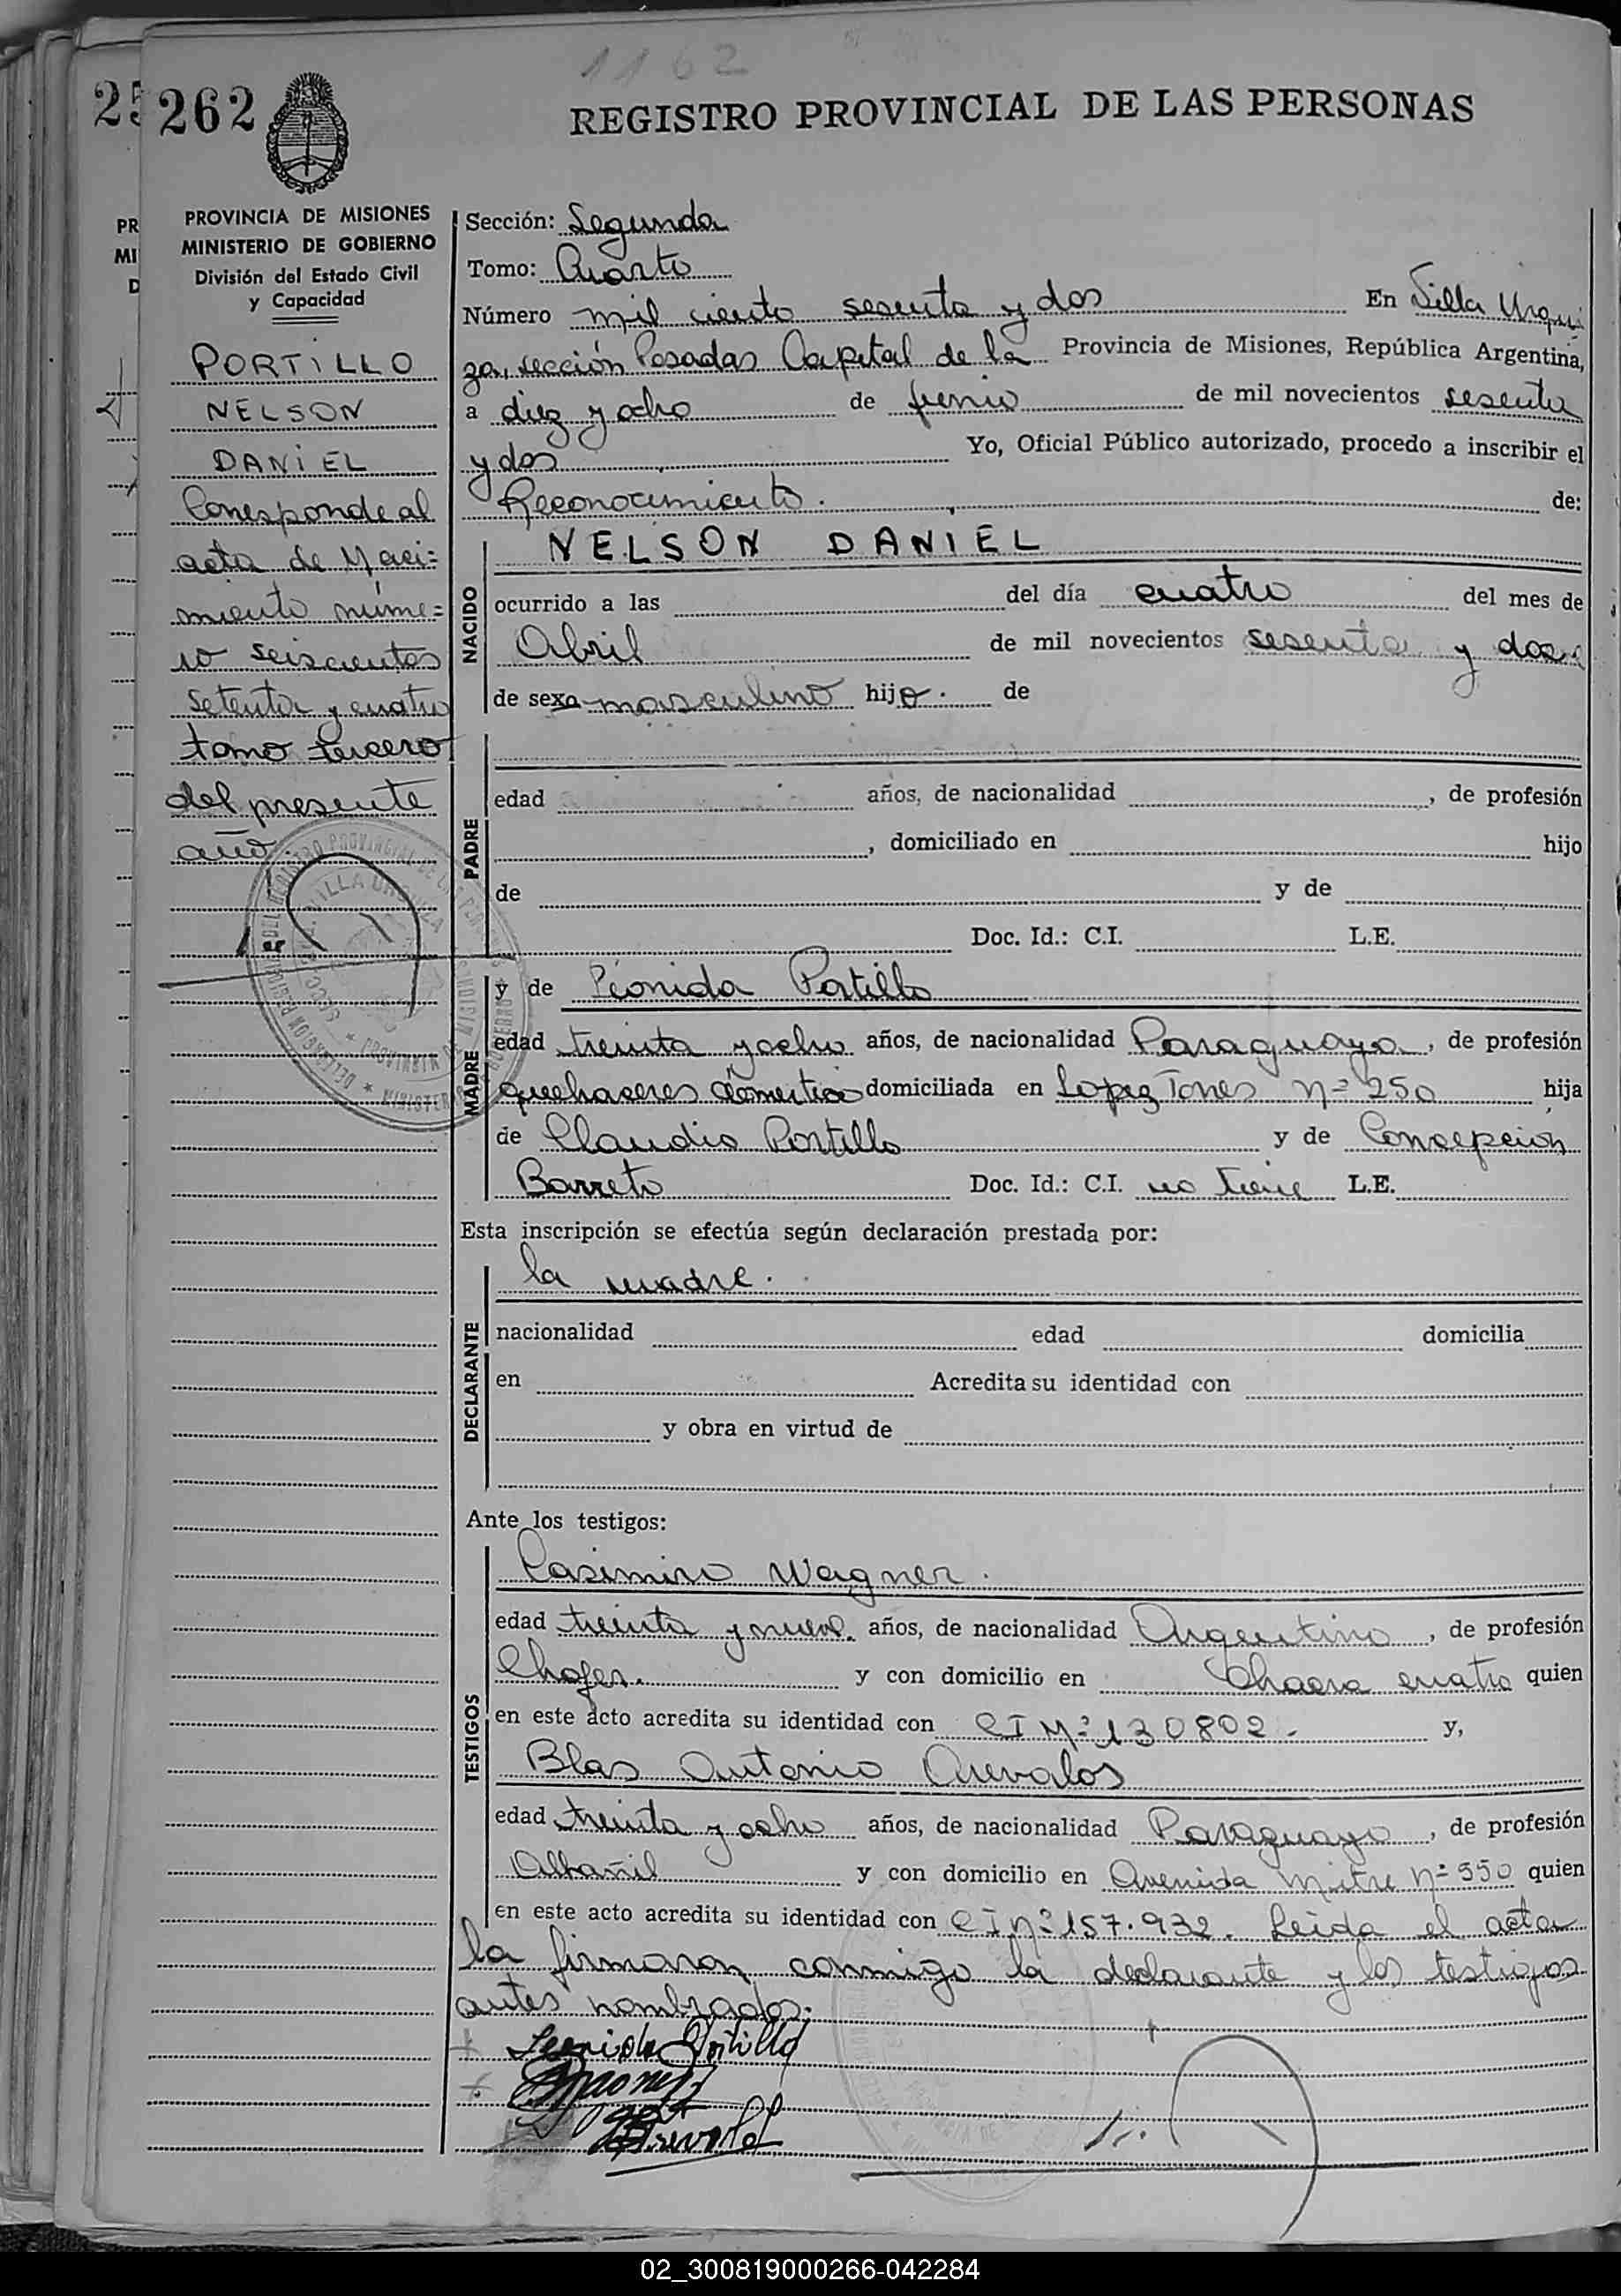 1162
262
REGISTRO PROVINCIAL DE LAS PERSONAS
PROVINCIA DE MISIONES
MINISTERIO DE GOBIERNO
División del Estado Civil
y Capacidad
PORTILLO
NELSON
DANIEL
Corresponde al
acta de Naci=
miento núme=
ro seiscientos
setenta y cuatro
tomo tercero
del presente
año.
Sección: Segunda
Tomo: Cuarto
Número mil ciento sesenta y dos En Villa Urqui
za, sección Posadas Capital de la Provincia de Misiones, República Argentina,
a diez y ocho de junio de mil novecientos sesenta
y dos Yo, Oficial Público autorizado, procedo a inscribir el
Reconocimiento. de:
NACIDO
NELSON DANIEL
ocurrido a las del día cuatro del mes de
Abril de mil novecientos sesenta y dos
de sexo masculino hijo. de
PADRE
edad años, de nacionalidad , de profesión
, domiciliado en hijo
de y de
Doc. Id.: C.I. L.E.
MADRE
y de Leonida Portillo
edad treinta y ocho años, de nacionalidad Paraguaya, de profesión
quehaceres domestico domiciliada en Lopez Torres nº 250 hija
de Claudio Portillo y de Concepcion
Barreto Doc. Id.: C.I. no tiene L.E.
Esta inscripción se efectúa según declaración prestada por:
DECLARANTE
la madre.
nacionalidad edad domicilia
en Acredita su identidad con
y obra en virtud de
Ante los testigos:
TESTIGOS
Casimiro Wagner.
edad treinta y nueve. años, de nacionalidad Argentino, de profesión
Chofer. y con domicilio en Chacra cuatro quien
en este acto acredita su identidad con CI Nº 130802. y,
Blas Antonio Arevalos
edad treinta y ocho años, de nacionalidad Paraguayo, de profesión
Albañil y con domicilio en Avenida Mitre nº 550 quien
en este acto acredita su identidad con CI nº 157.932. Leida el acta
la firmaron conmigo la declarante y los testigos
antes nombrados.
Leonida Portillo
02_300819000266-042284